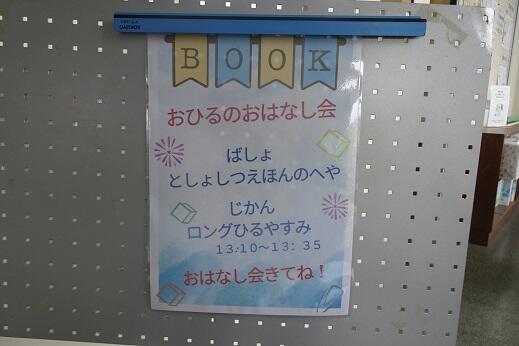 BOOK
おひるのおはなし会
ばしょ
としょしつえほんのへや
じかん
ロングひるやすみ
13:10～13:35
おはなし会きてね！